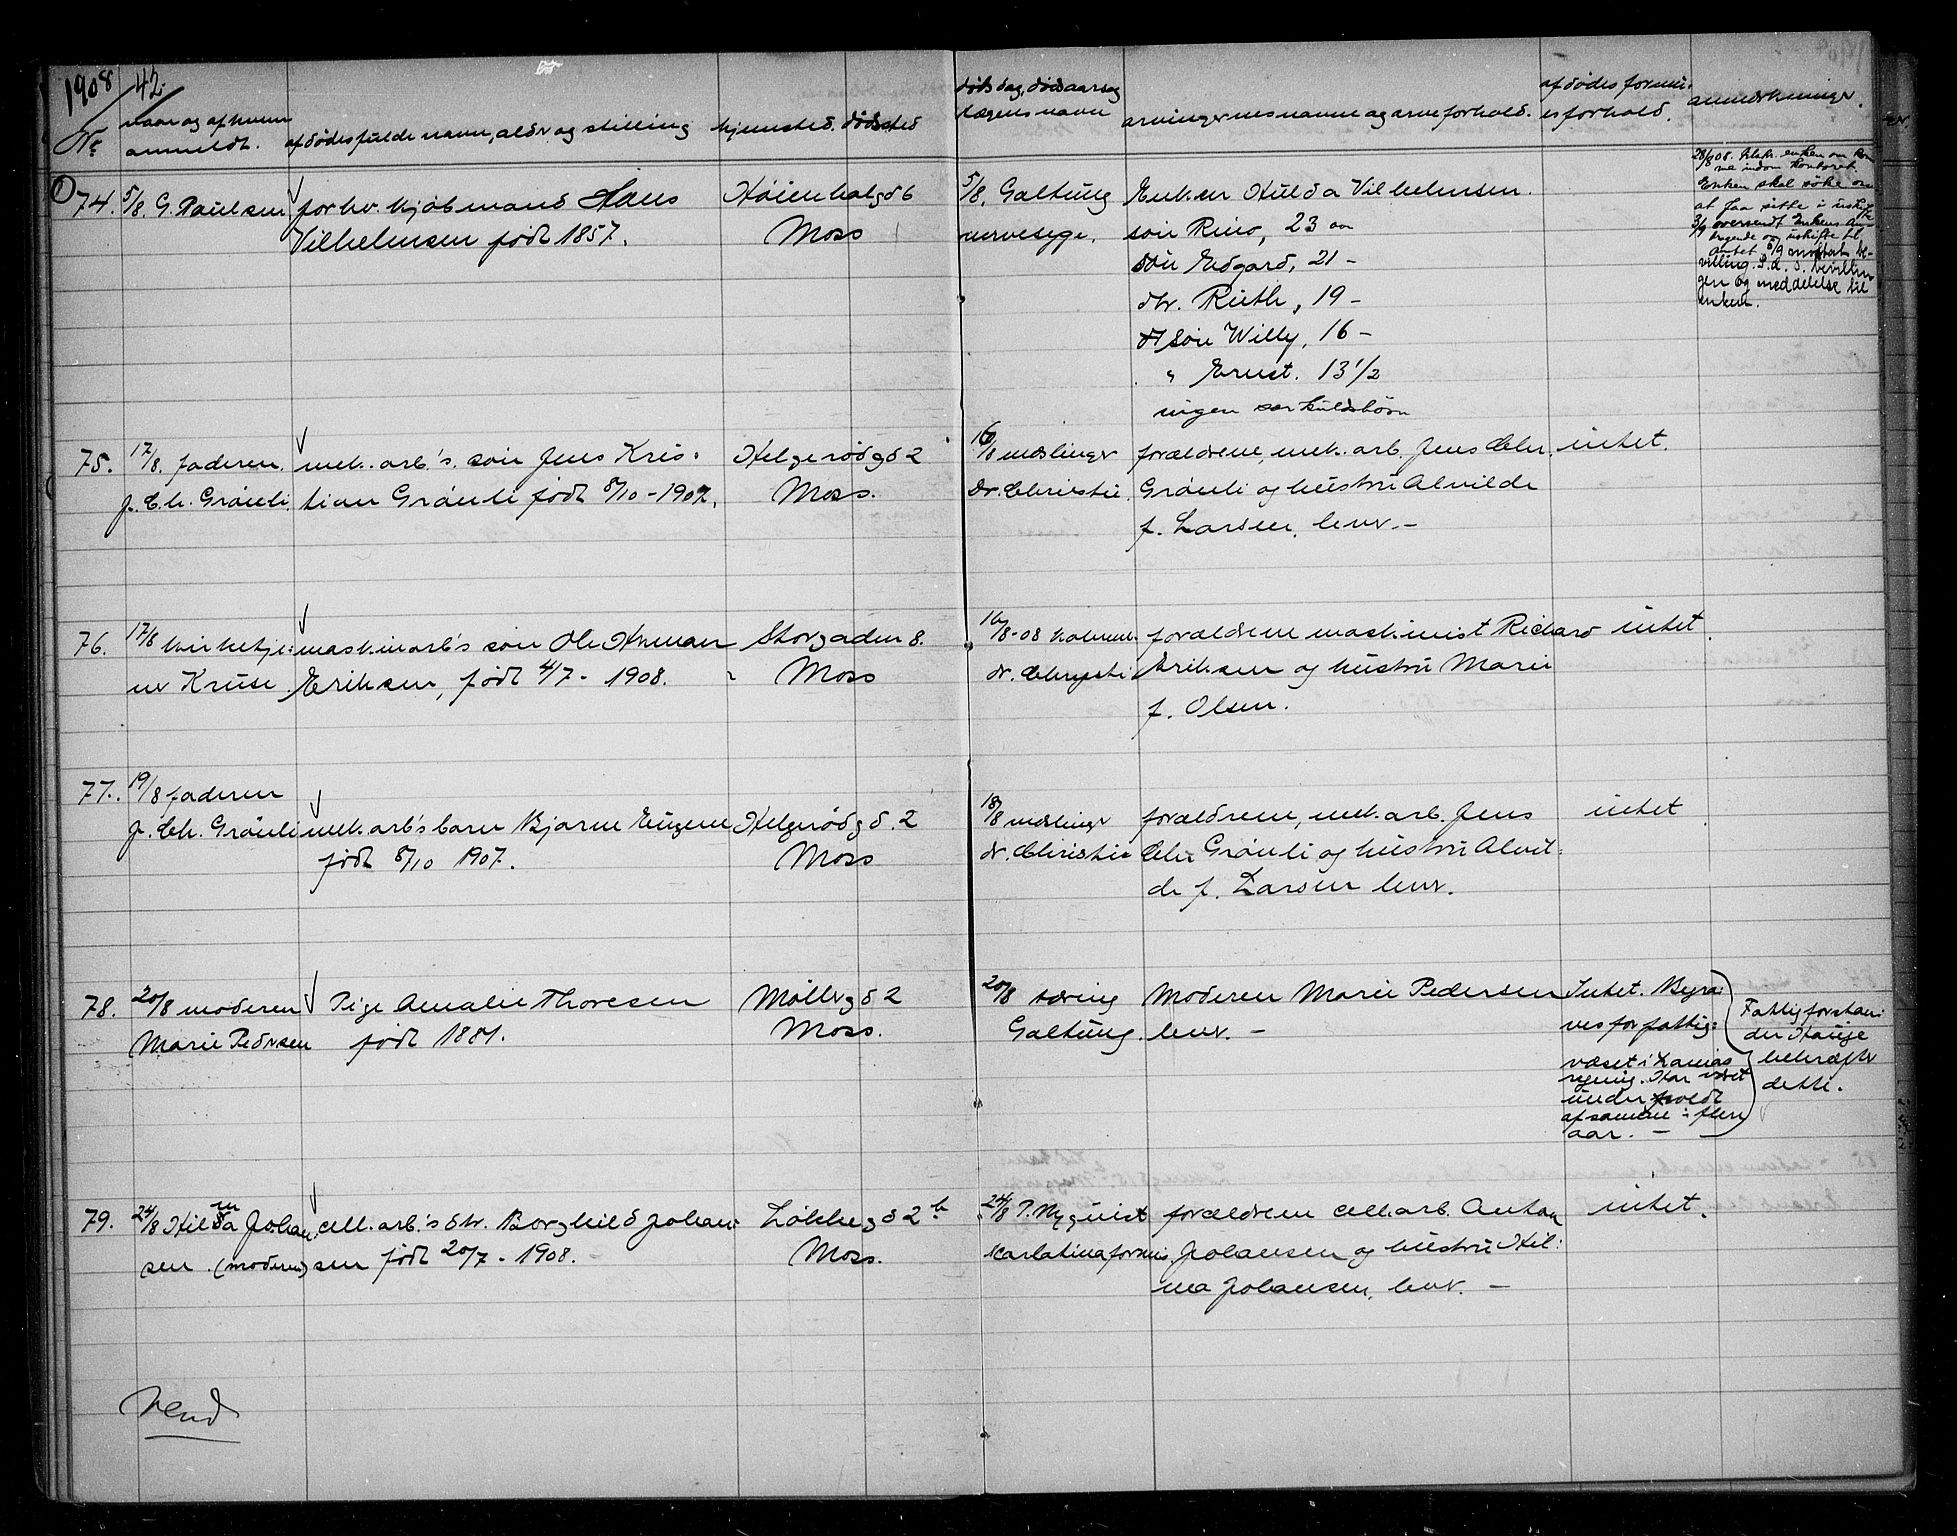 1908
42.
No
naar og af hvem
anmeldt.
afdødes fulde navn, alder og stilling
hjemsted. dødssted
dødsdag, dødsaarsag
lægens navn
arvingernes navne og arveforhold.
afdødes formu-
esforhold.
anmerkninger.
74. 5/8. G. Paulsen
forhv. kjøbmand Hans
Vilhelmsen født 1857.
Høienhalgd 6
Moss
5/8. Galtung
nervesyge.
Enken Hulda Vilhelmsen.
søn Rino, 23 aar
søn Edgard, 21 -
dtr. Ruth, 19 -
søn Willy, 16 -
" Ernst. 13 1/2
ingen særkuldsbørn
28/8 08. enken om kom
me indom kontoret.
Enken skal søke om
at faa sitte i uskifte
3/9 oversendt Enkens an-
dragende om uskifte til
amtet. 5/9 mottat be-
villing. S. d. s. bevillin
gen og meddelelse til
enken.
75. 17/8. faderen
J. Ch. Grønli.
mek. arb's. søn Jens Kris-
tian Grønli født 8/10 - 1907.
Helgerødgd 2
Moss.
16/8 meslinger
Dr. Christie.
forældrene, mek. arb. Jens Chr.
Grønli og hustru Alvilde
f. Larsen, lever. -
intet.
76. 17/8 kirketje-
ner Kruse.
maskinarb's søn Ole Herman
Eriksen, født 4/7 - 1908.
Storgaden 8.
Moss
16/8-08
dr. Christi
forældrene maskinist Richard
Eriksen og hustru Marie
f. Olsen.
intet.
77. 19/8 faderen
J. Ch. Grønli
mek. arb's barn Bjarne Eugene
født 8/10 1907.
Helgerødgd. 2
Moss
18/8 meslinger
dr. Christie
forældrene, mek. arb. Jens
Chr Grønli og hustru Alvil-
de f. Larsen lever.
intet
78. 20/8 moderen
Marie Pedersen
Pige Amalie Thoresen
født 1881.
Møllergd 2
Moss.
20/8 tæring
Galtung.
Moderen Marie Pedersen
lever. -
Intet. Begra-
ves for fattig-
væset i
regning. Har været
under
af samme i flere
aar. -
Fattigforstan-
der Hauge
bekræfter
dette.
79. 24/8 Hilda Johan-
m
sen. (moderen)
cell. arb's dtr. Borghild Johan-
sen født 20/7 - 1908.
Løkkegd 2 b
Moss.
24/8 P. Nyquist
scarlatinaformis.
forældrene cell. arb. Anton
Johansen og hustru Hil-
ma Johansen, lever. -
intet.
Vend